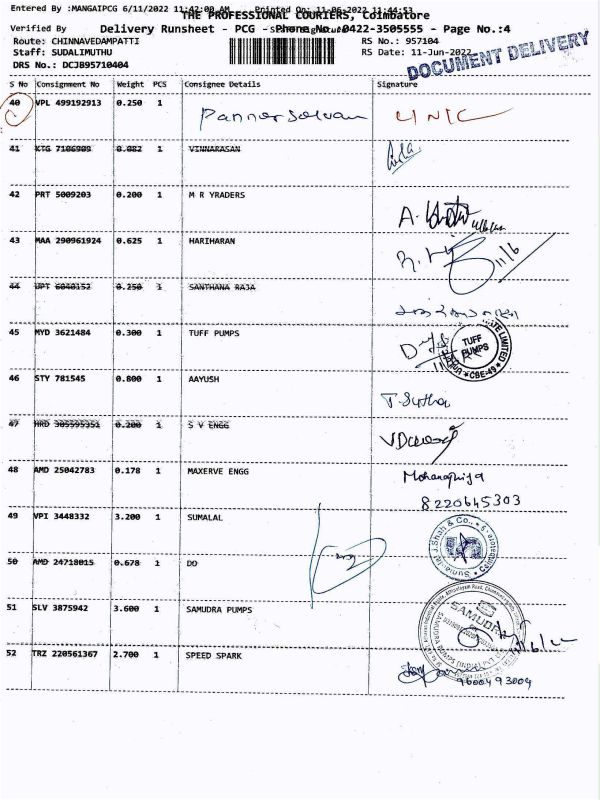 Entered By :MANGAIPCG 6/11/2022 11:42:00 AM Printed On: 11-06-2022 11:44:53
THE PROFESSIONAL COURIERS, Coimbatore
Verified By Delivery Runsheet - PCG - Phone No.:0422-3505555 - Page No.:4
Route: CHINNAVEDAMPATTI RS No.: 957104
Staff: SUDALIMUTHU RS Date: 11-Jun-2022
DRS No.: DCJ895710404
DOCUMENT DELIVERY
S No Consignment No Weight PCS Consignee Details Signature
40 VPL 499192913 0.250 1
41 KTG 7106909 0.082 1 VINNARASAN
42 PRT 5009203 0.200 1 M R YRADERS
43 MAA 290961924 0.625 1 HARIHARAN
11/6
44 UPT 6040152 0.250 1 SANTHANA RAJA
45 MYD 3621484 0.300 1 TUFF PUMPS
TUFF PUMPS
CBE-49
46 STY 781545 0.800 1 AAYUSH
T. Sutha
47 HRD 305595351 0.200 1 S V ENGG
48 AMD 25042783 0.178 1 MAXERVE ENGG
8220645303
49 VPI 3448332 3.200 1 SUMALAL
Sumanlal J.Shah & Co.,
50 AMD 24718015 0.678 1 DO
51 SLV 3875942 3.600 1 SAMUDRA PUMPS
SAMUDRA
52 TRZ 220561367 2.700 1 SPEED SPARK
9600493004